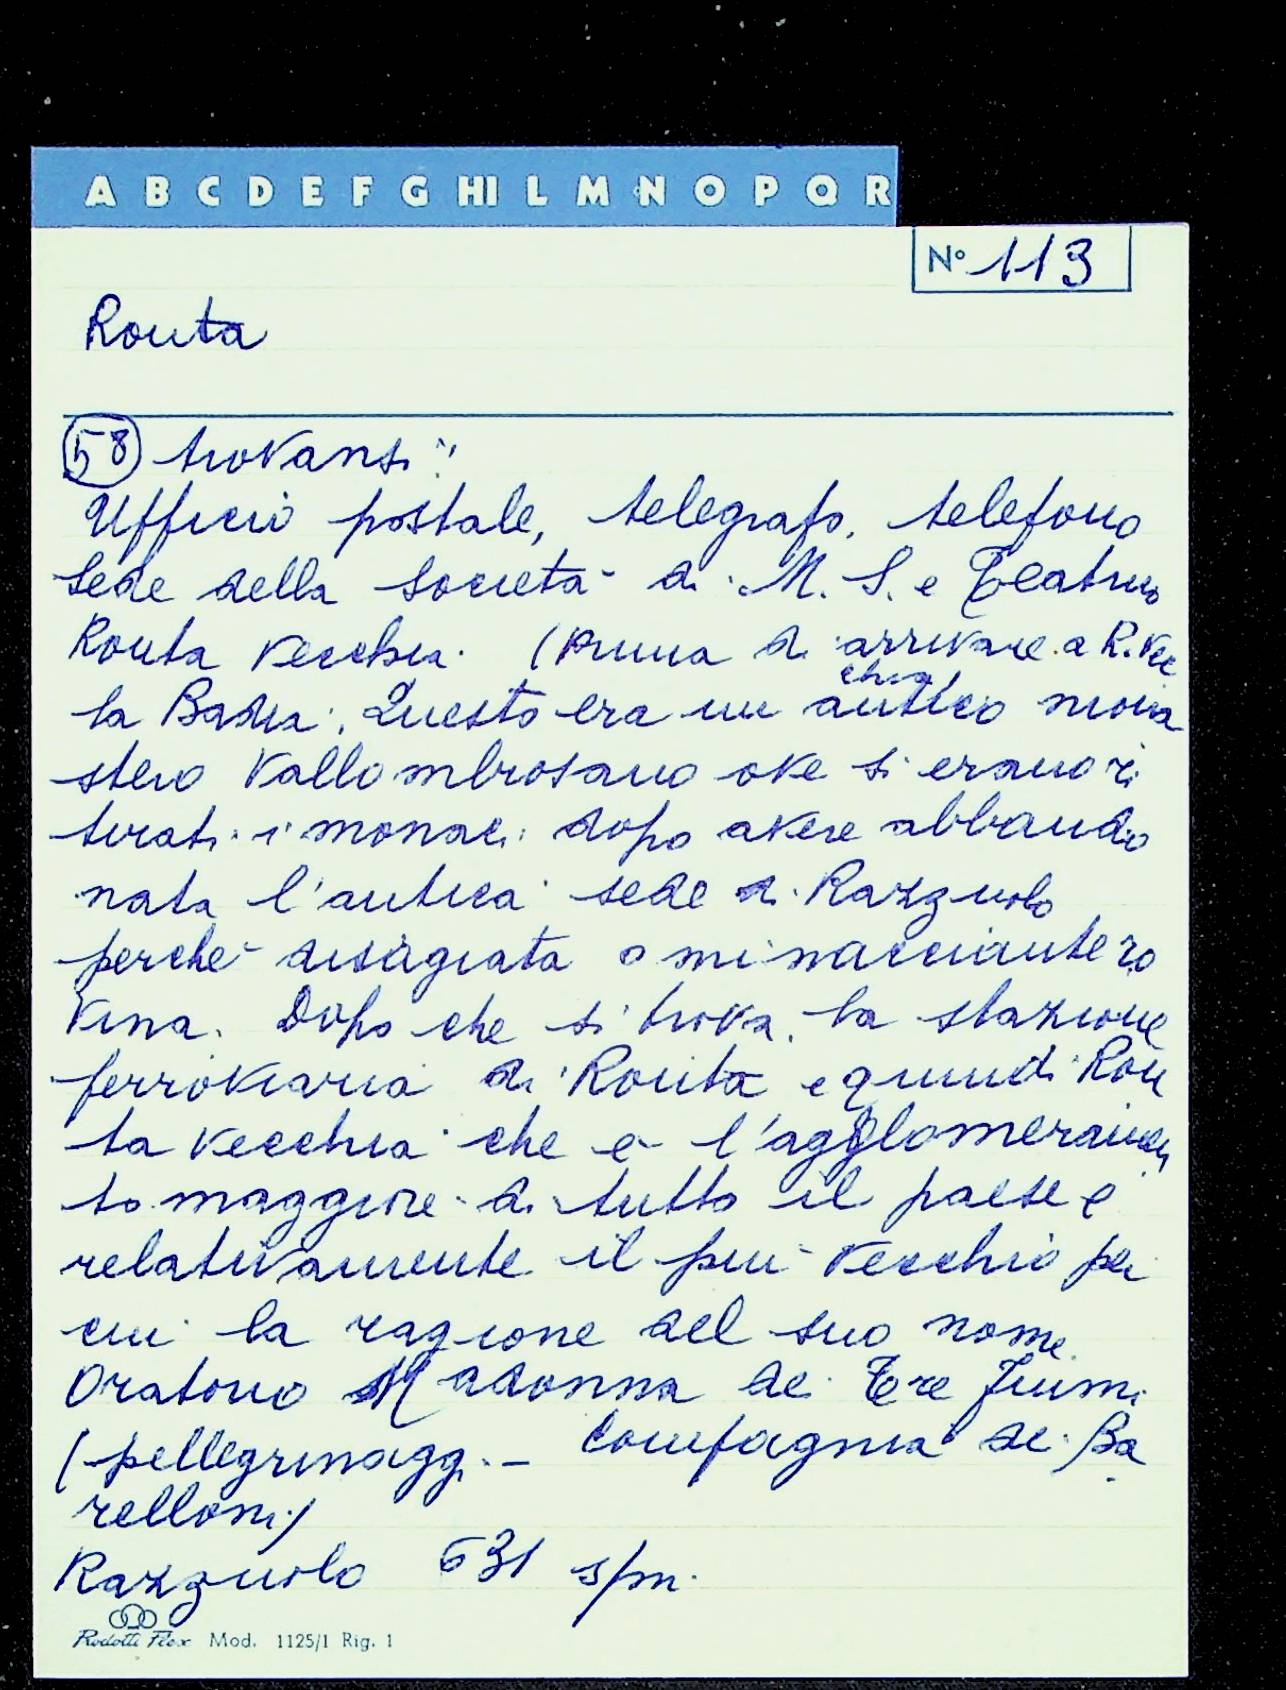 A B C D E F G HI L M N O P Q R
N° 113
Ronta
58 trovansi:
Ufficio postale, telegrafo, telefono
sede della società di M. S. e Teatrino
Ronta Vecchia. (Prima di arrivare a R. Vec
chia,
la Badia. Questo era un antico mona
stero Vallombrosano ove si erano ri
tirati i monaci dopo avere abbando
nata l'antica sede di Razzuolo
perchè disagiata o minacciante ro
vina. Dopo che si trova la stazione
ferroviaria di Ronta e quindi Ron
ta Vecchia che è l'agglomeramen
to maggiore di tutto il paese e
relativamente il più vecchio per
cui la ragione del suo nome.
Oratorio Madonna dei Tre Fiumi
(pellegrinaggi - Compagnia dei Ba
relloni)
Razzuolo 631 s/m.
Rodotti Flex Mod. 1125/1 Rig. 1